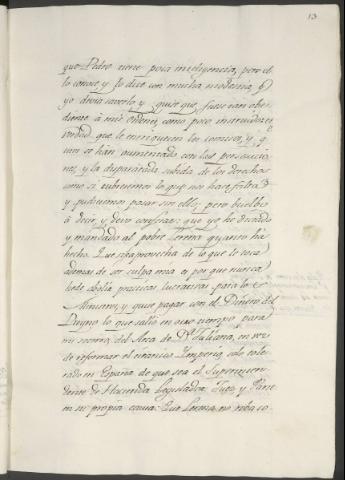 13
que Pedro tiene poca inteligencia, pero el
lo conoce y lo dice con mucha modestia, q̃
yo devia saverlo y quise que fuese tan obe-
diente à mis ordenes, como poco instruido es
verdad que le enriquecen los comisos, y q.
se han aumentado con las persecucio-
nes, y la disparatada subida de los derechos
como si tubiesemos lo que nos hace falta
y pudieramos pasar sin ello; pero buelbo
à decir, y devo confesar: que yo he dictado
y mandado al pobre Lerena quanto hà
hecho. Que se aprovecha de lo que le toca
ademas de ser culpa mia
hede abolir practicas lucrativas para el
Ministro, y quise pagar con el Dinero del
Reyno lo que salió en otro tiempo para
mi del Arca de D.ª Juliana, en vez
de reformar el tiranico Imperio, solo tole-
rado en España de que sea el Superinten-
dente de Hacienda Legislador, Juez, y Parte
en su propia causa: Que Lerena no roba co